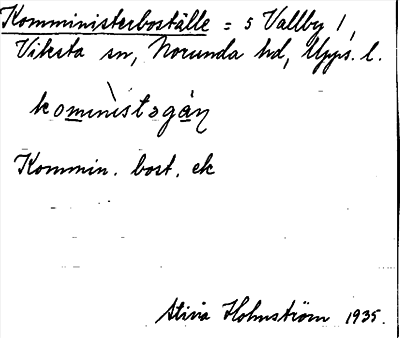 Komministerbostället = 5 Vallby 1,
Viksta sn, Norunda hd, Upps. l.
koministəgàɳ
Kommin. bost. ek
Stina Holmström 1935.